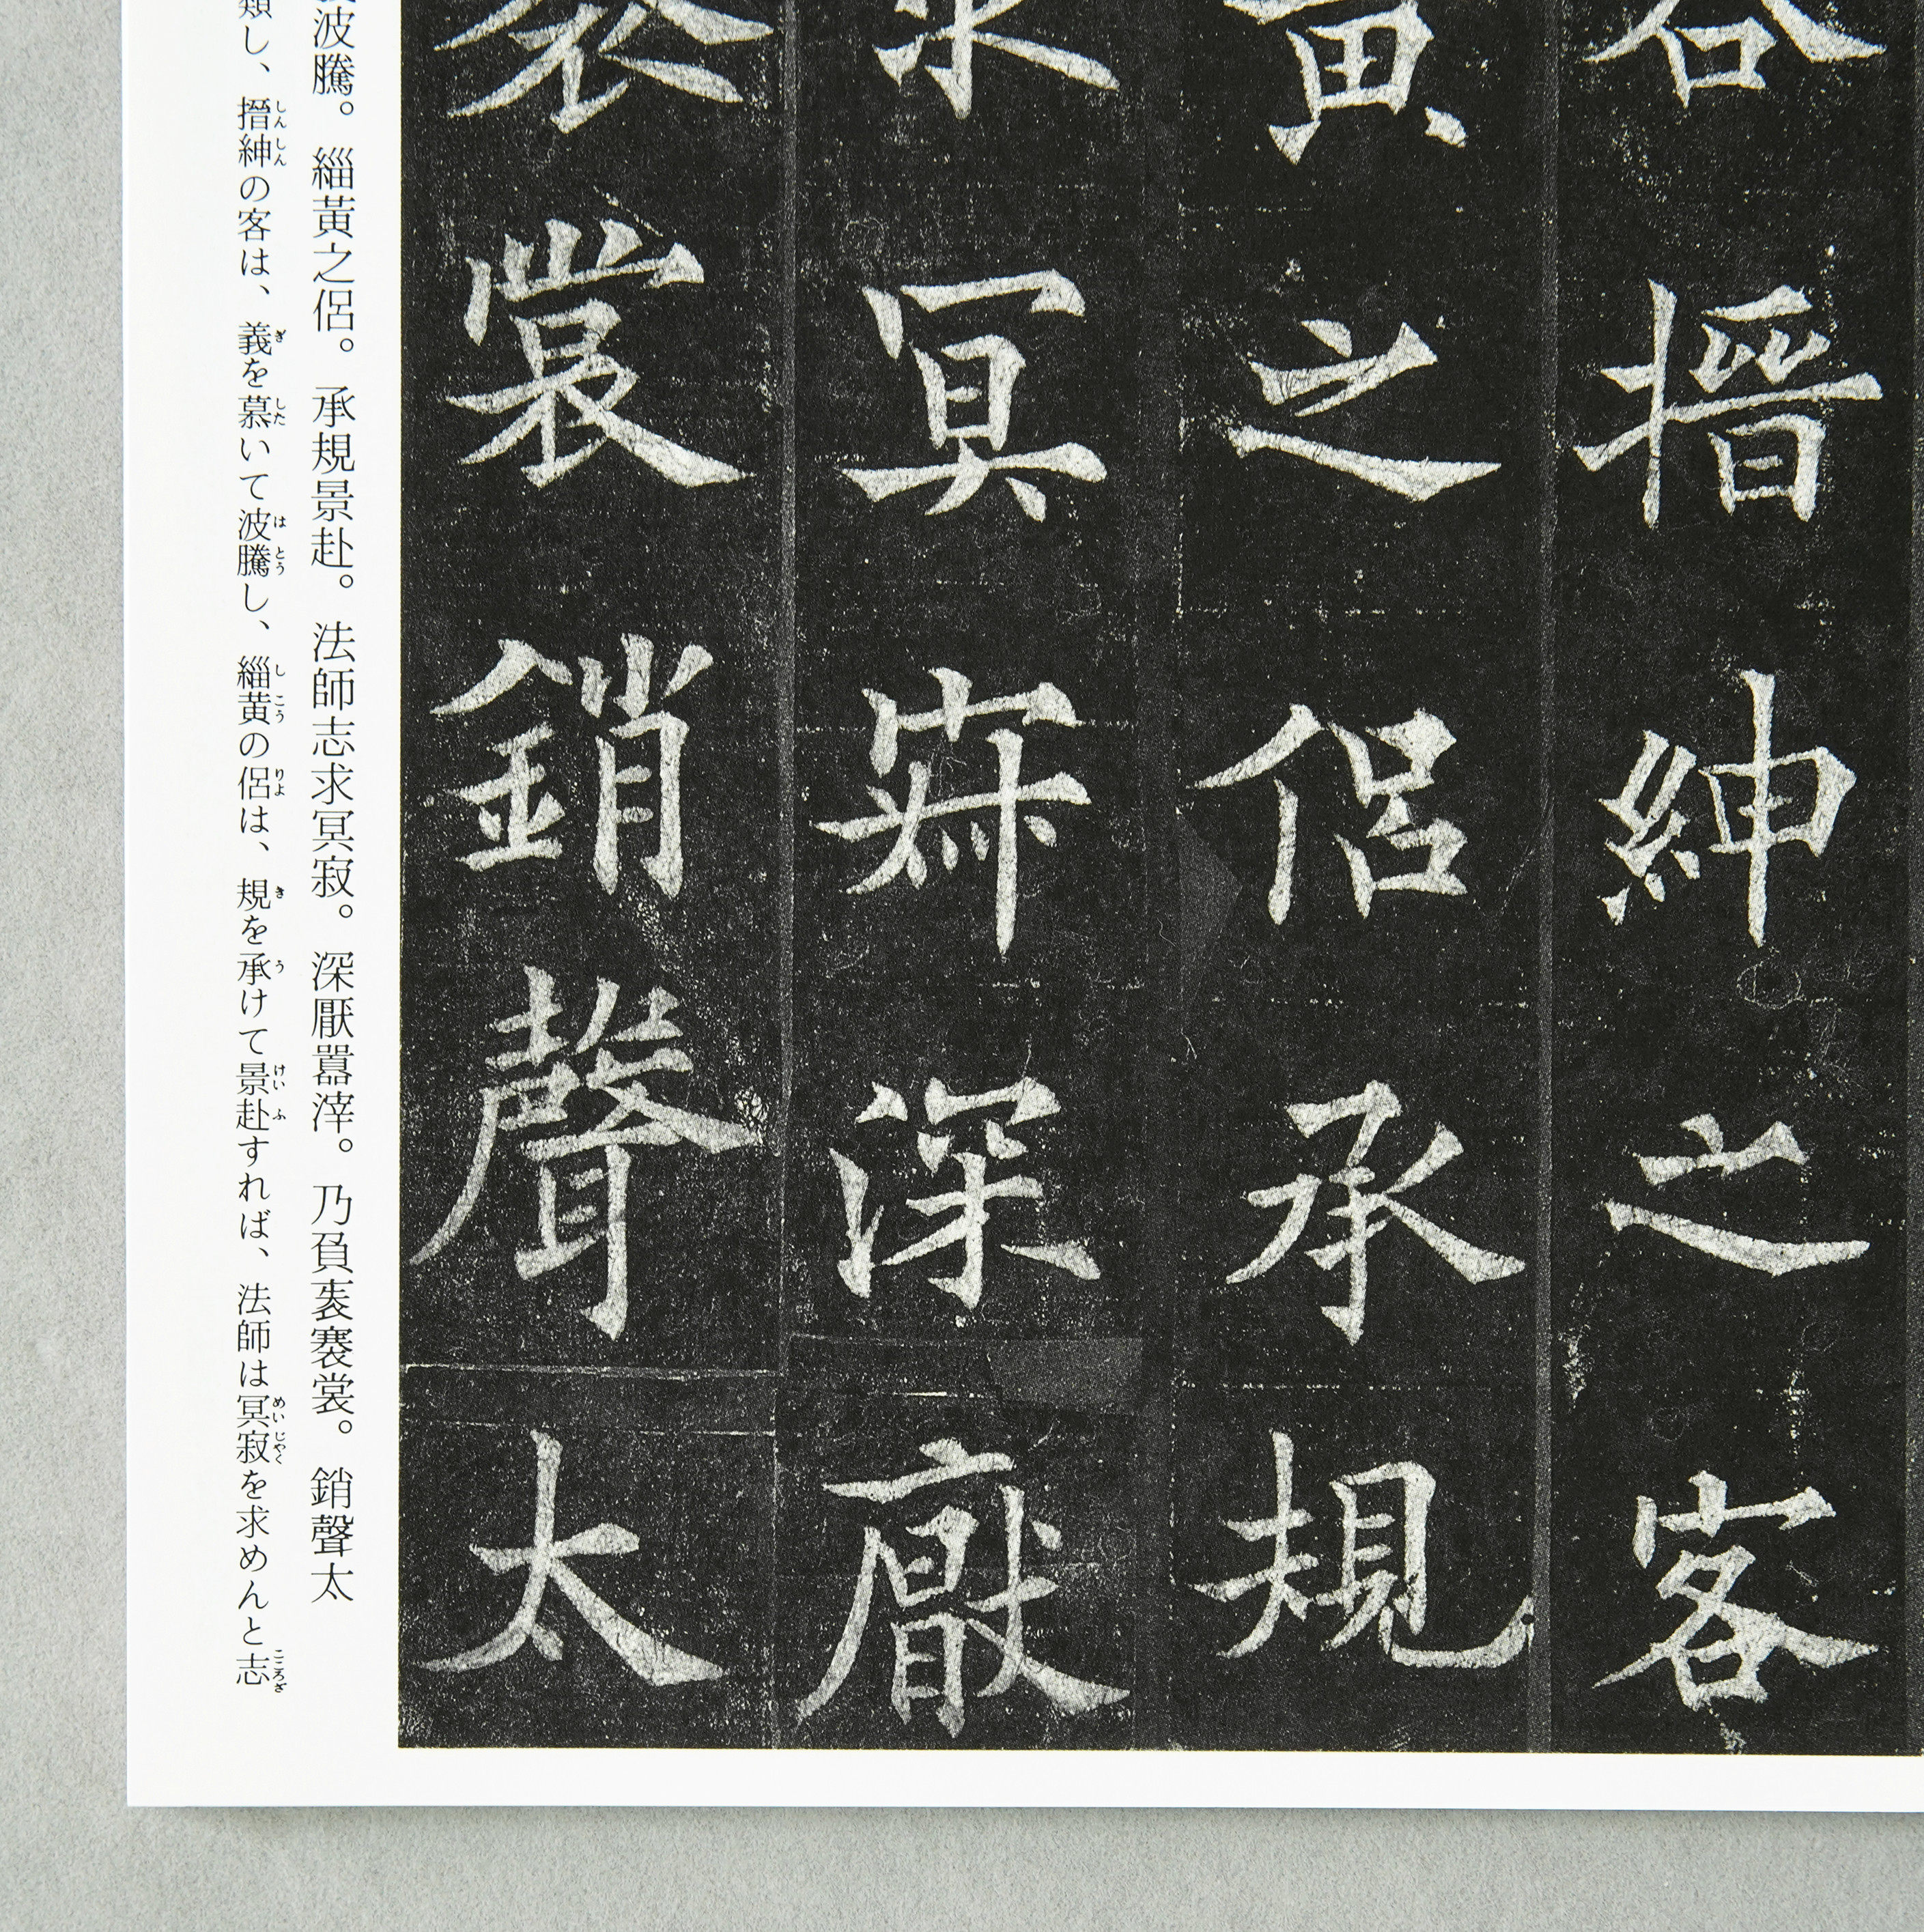 搢紳之客
之侶承規
冥寂深厭
裳銷聲太
波騰。緇黃之侶。承規景赴。法師志求冥寂。深厭囂滓。乃負袠褰裳。銷聲太
し、搢紳の客は、義を慕いて波騰し、緇黄の侶は、規を承けて景赴すれば、法師は冥寂を求めんと志